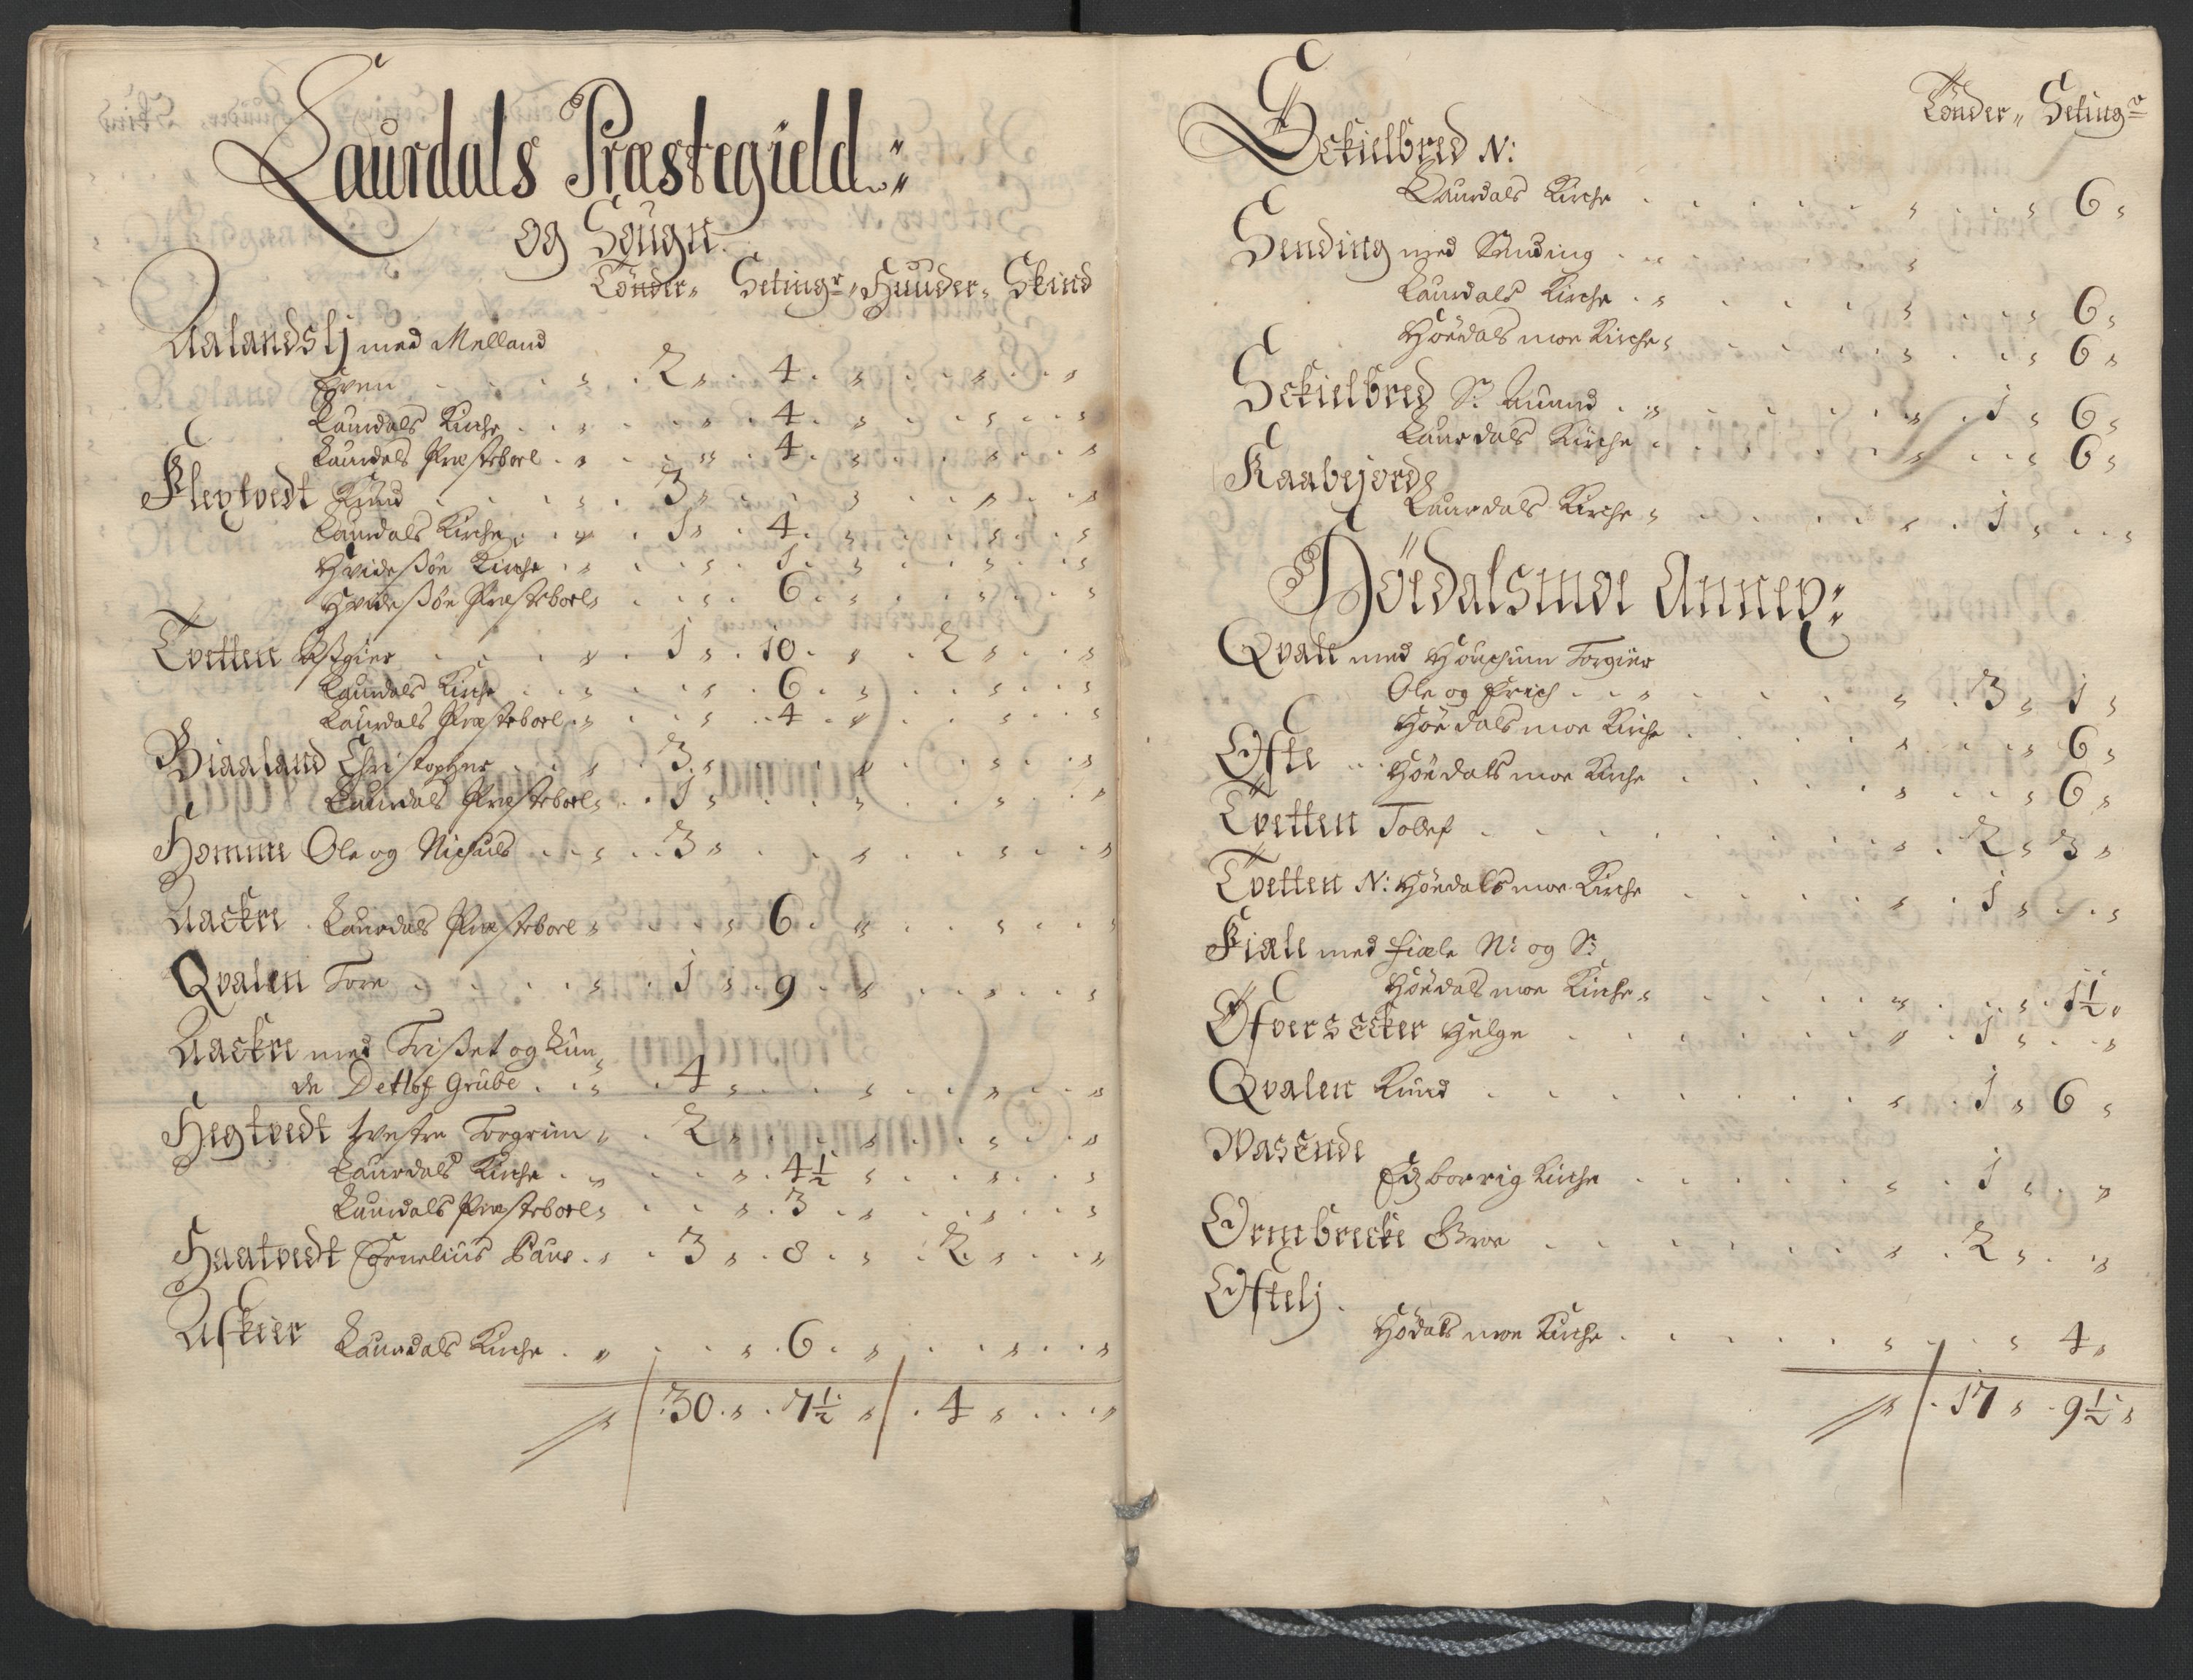 Laurdals Præstegield
og Sougn
Tönder„ Seting^r„ Huuder„ Skind
Aalandslj med Melland
Even . . . „ . 2 „ . 4 . „ . . „ . . „
Laurdals Kirche . . „ . . „ . 4 . „ . . „ . . „
Laurdals Præsteboel . „ . . „ . 4 . „ . . „ . . „
Flextvedt Knud . . . „ . 3 „ . . „ . . „ . . „
Laurdals Kirche . „ . 1 „ . 4 . „ . . „ . . „
Hvidesßöe Kirche . „ . . „ . 1 . „ . . „ . . „
Hvidesßöe Præsteboel „ . . „ . 6 . „ . . „ . . „
Tvetten Aßgier . . . „ . 1 „ . 10 . „ . 2 „ . . „
Laurdals Kirche . . „ . . „ . 6 . „ . . „ . . „
Laurdals Præsteboel . „ . . „ . 4 . „ . . „ . . „
Biaaland Christopher . . „ . 3 „ . . „ . . „ . . „
Laurdals Præsteboel „ . 1 „ . . „ . . „ . . „
Homme Ole og Nichuls . . „ . 3 „ . . „ . . „ . . „
Aackre . Laurdals Præsteboel „ . . „ . 6 . „ . . „ . . „
Qvalen Tore . . . „ . 1 „ . 9 . „ . . „ . . „
Aackre med Trißet og Lun„
de Detlof Grube . . „ . 4 „ . . „ . . „ . . „
Hegtvedt Westre Torgrim „ . 2 „ . . „ . . „ . . „
Laurdals Kirche . „ . . „ . 4½ „ . . „ . . „
Laurdals Præsteboel „ . . „ . 3 . „ . . „ . . „
Haatvedt Cornelius Paus . „ . 3 „ . 8 . „ . 2 „ . . „
Askier Laurdals Kirche . „ . . „ . 6 . „ . . „ . . „
„ . 30 . „ . 7½ „ . 4 „ . . „
Tönder„ Seting^r
Sckielbred N:
Laurdals Kirche . . . . „ . . „ 6 „
Sending med Sending . „ . . „
Laurdals Kirche . „ . . „ . . „ 6 „
Höydals moe Kirche „ . . „ . . „ 6 „
Sckielbred S: Aumund . „ . . „ . 1 „ 6 „
Laurdals Kirche . . . „ . . „ 6 „
Kaabejorde
Laurdals Kirche „ . . . „ . 1 „ . . „
Höedalsmoe Annex:
Qvale med Houchum Torgier
Ole og Erich . . „ . . „ . 3 „ 1 „
Höedals moe Kirche . . . „ . . „ 6 „
Ofte . . Höedals moe Kirche . . . „ . . „ 6 „
Tvetten Tollef . . . . . „ . 2 „ 3 „
Tvetten N: Höedals moe Kirche . . . „ . 1 „ . . „
Fiale med Fiæle N: og S:
Höedals moe Kirche „ . . . „ . . „ 1½ „
Öfversecker Helge . . . . „ . 1 „ . . „
Qvalen Knud . . . . . „ . 1 „ 6 „
Wasende
Eidborrig Kirche . . . . „ . 1 „ . „
Ormbrecke Groe . . . . . „ . 2 „ . „
Oftelj .
Hödals moe Kirche . . . . „ . . „ 4 „
„ . 17 „ . 9½ „